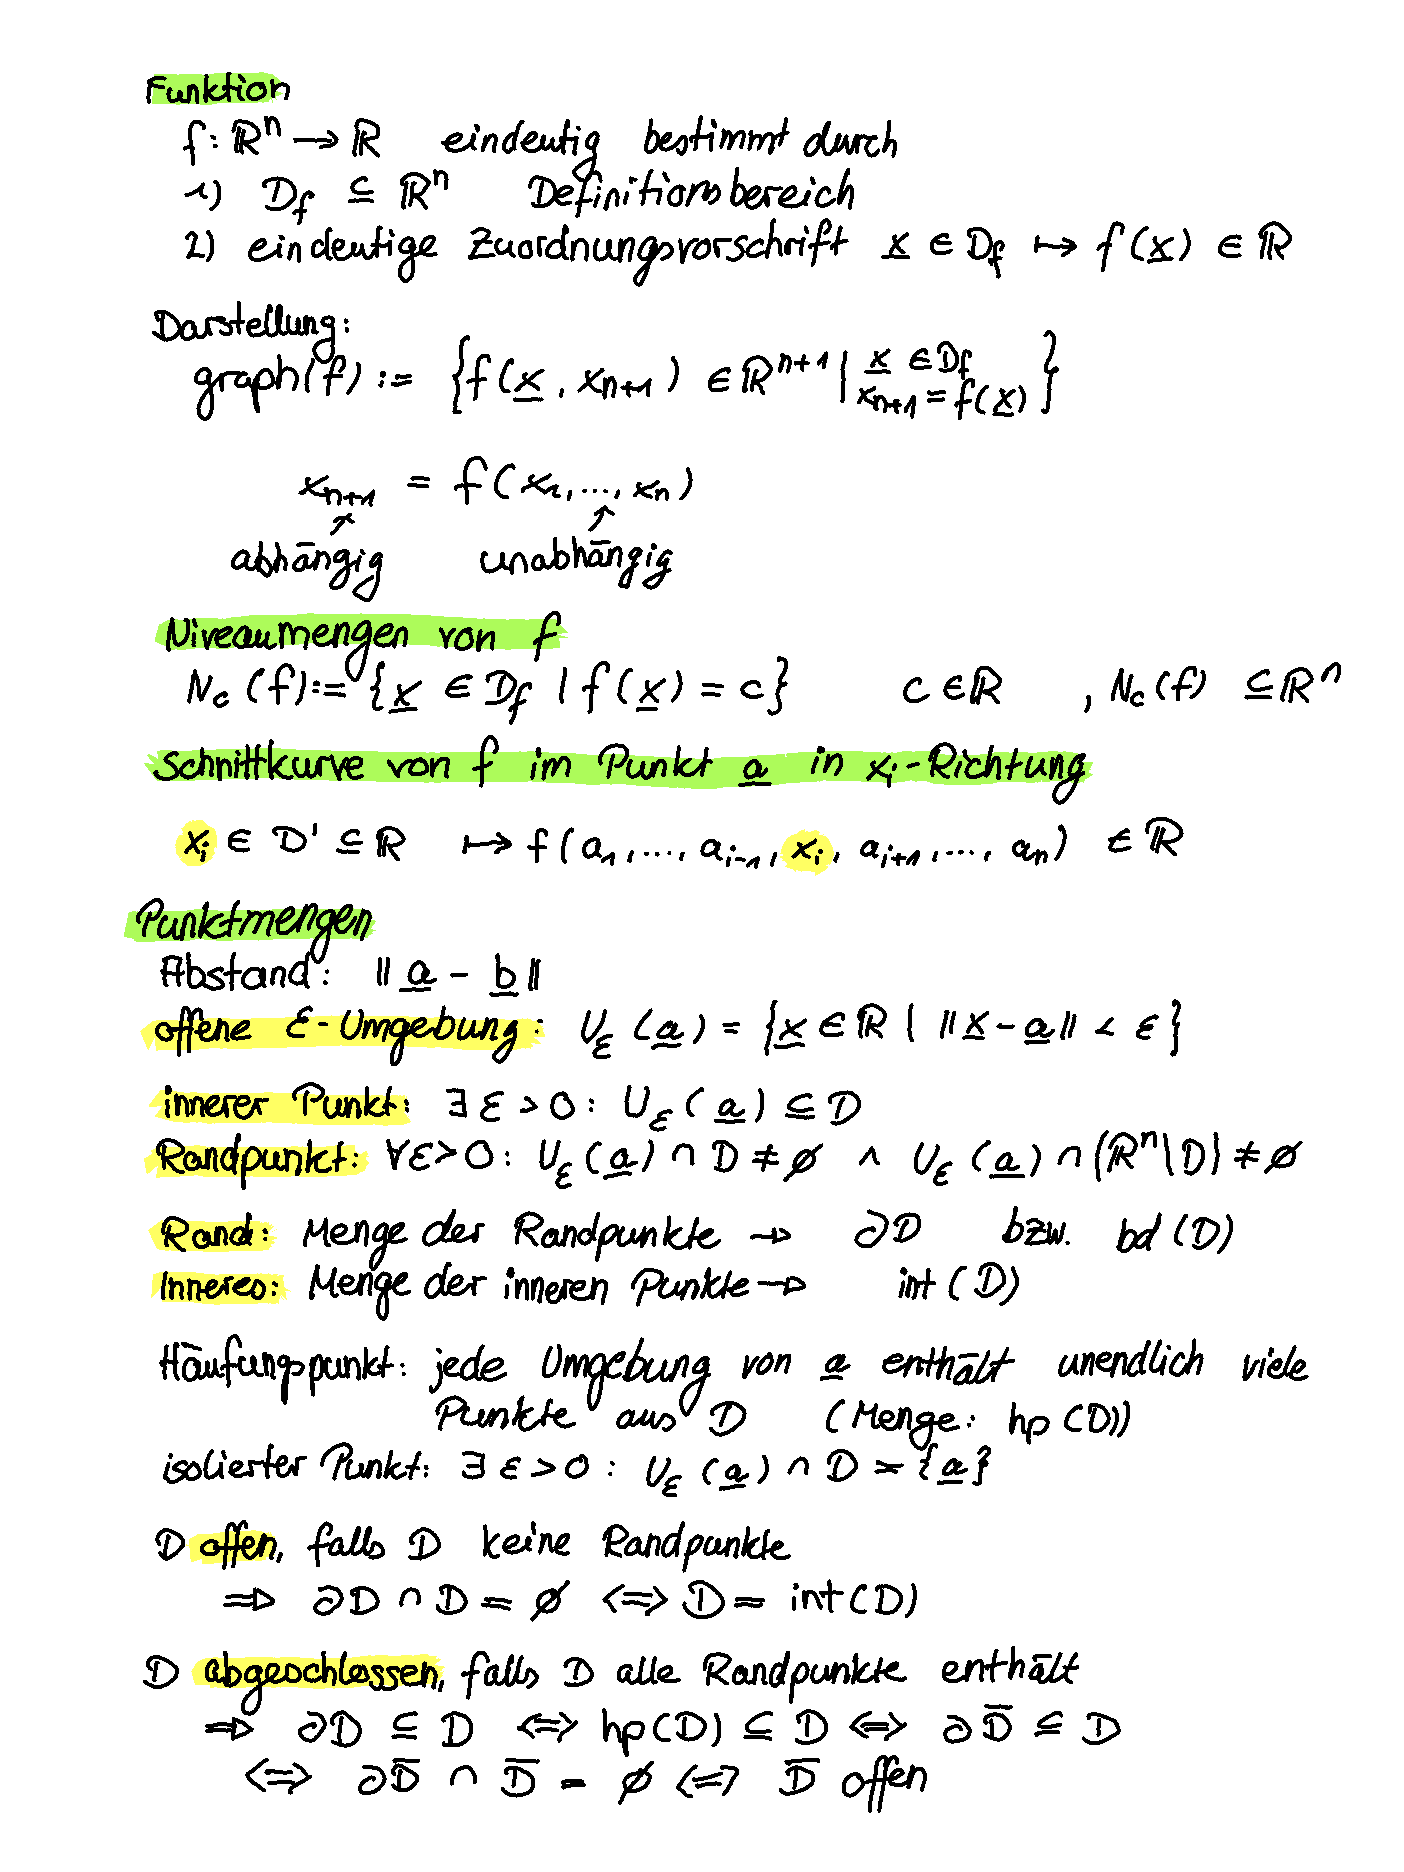 Funktion
f: ℝⁿ → ℝ eindeutig bestimmt durch
1) D_f ⊆ ℝⁿ Definitionsbereich
2) eindeutige Zuordnungsvorschrift x̲ ∈ D_f ↦ f(x̲) ∈ ℝ
Darstellung:
graph(f) := {f(x̲, xₙ₊₁) ∈ ℝⁿ⁺¹ | x̲ ∈ D_f
xₙ₊₁ = f(x̲)}
xₙ₊₁ = f(x₁, ..., xₙ)
↗ ↗
abhängig unabhängig
Niveaumengen von f
N_c(f) := {x̲ ∈ D_f | f(x̲) = c} c ∈ ℝ , N_c(f) ⊆ ℝⁿ
Schnittkurve von f im Punkt a̲ in xᵢ-Richtung
xᵢ ∈ D' ⊆ ℝ ↦ f(a₁, ..., aᵢ₋₁, xᵢ, aᵢ₊₁, ..., aₙ) ∈ ℝ
Punktmengen
Abstand: ‖a̲ - b̲‖
offene ε-Umgebung: U_ε(a̲) = {x̲ ∈ ℝ | ‖x̲ - a̲‖ < ε}
innerer Punkt: ∃ ε > 0: U_ε(a̲) ⊆ D
Randpunkt: ∀ε > 0: U_ε(a̲) ∩ D ≠ ∅ ∧ U_ε(a̲) ∩ (ℝⁿ\D) ≠ ∅
Rand: Menge der Randpunkte → ∂D bzw. bd(D)
Inneres: Menge der inneren Punkte → int(D)
Häufungspunkt: jede Umgebung von a̲ enthält unendlich viele
Punkte aus D (Menge: hp(D))
isolierter Punkt: ∃ ε > 0: U_ε(a̲) ∩ D = {a̲}
D offen, falls D keine Randpunkte
⇒ ∂D ∩ D = ∅ ⇔ D = int(D)
D abgeschlossen, falls D alle Randpunkte enthält
⇒ ∂D ⊆ D ⇔ hp(D) ⊆ D ⇔ ∂D̅ ⊆ D
⇔ ∂D̅ ∩ D̅ = ∅ ⇔ D̅ offen